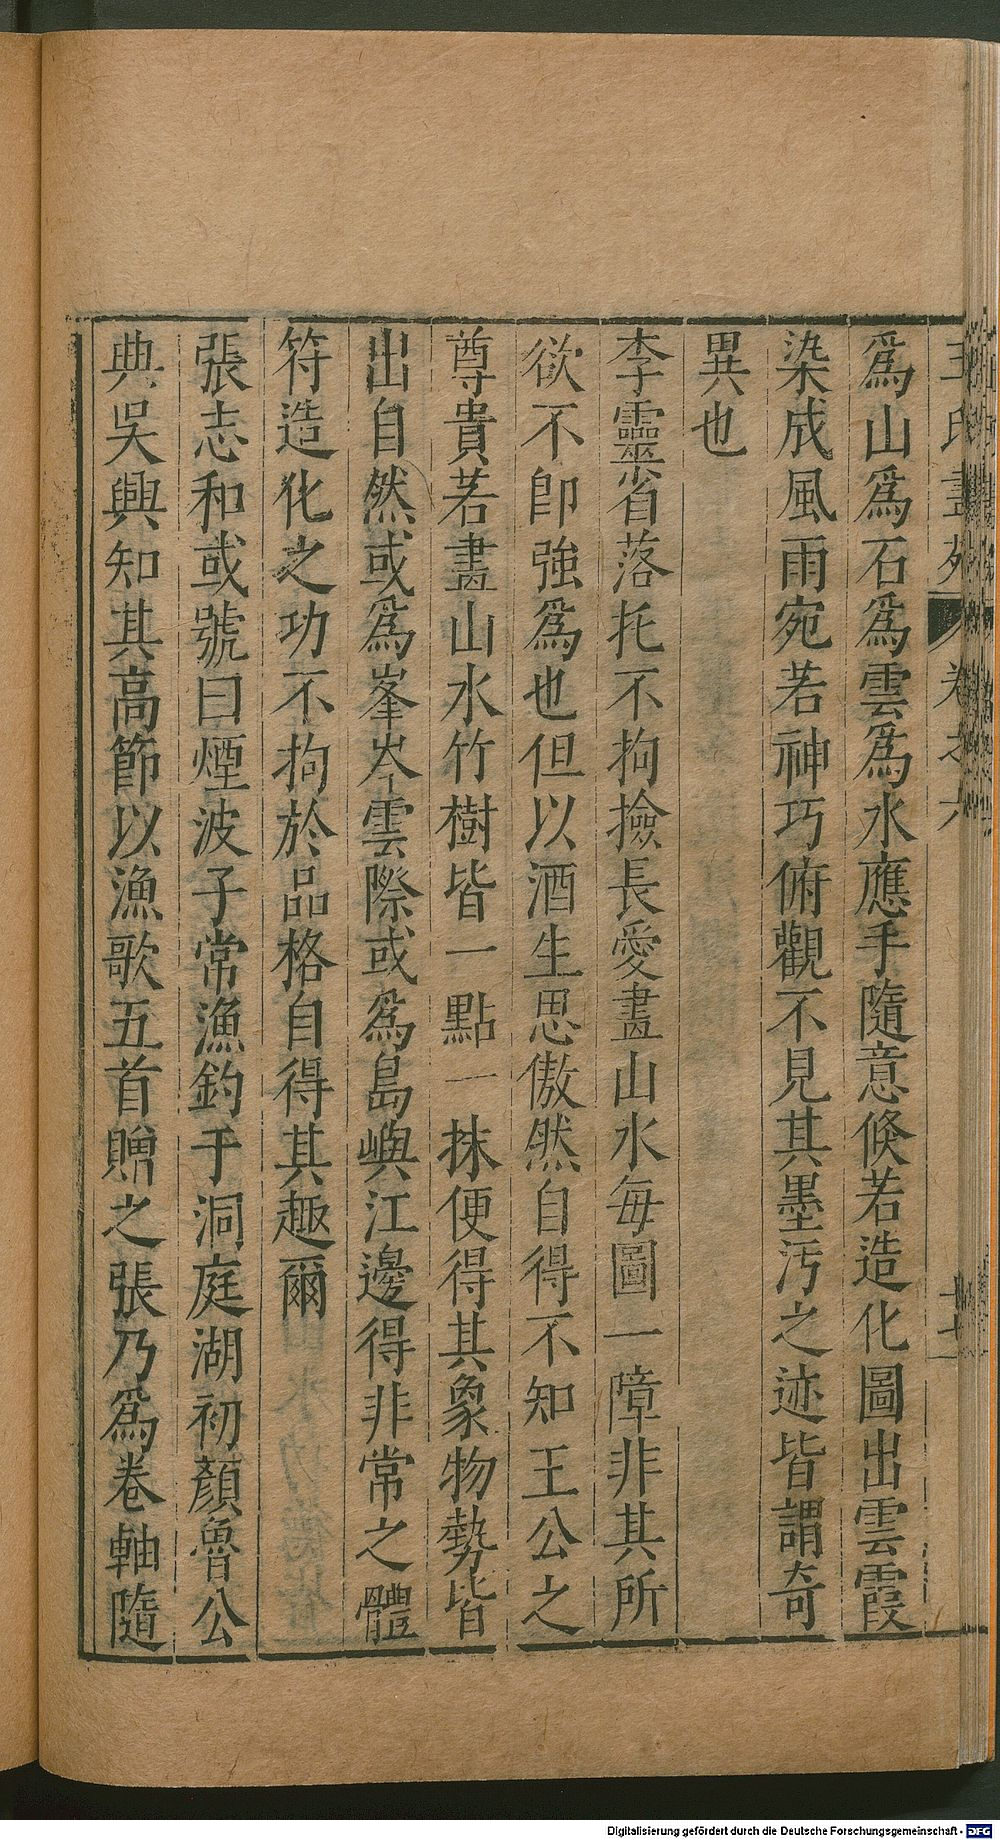 王氏畫苑 卷之六 十七
爲山爲石爲雲爲水應手隨意倏若造化圖出雲霞
染成風雨宛若神巧俯觀不見其墨污之迹皆謂奇
異也
李靈省落托不拘撿長愛畫山水每圖一障非其所
欲不卽強爲也但以酒生思傲然自得不知王公之
尊貴若畫山水竹樹皆一點一抹便得其象物勢皆
出自然或爲峯岑雲際或爲島嶼江邊得非常之體
符造化之功不拘於品格自得其趣爾
張志和或號曰煙波子常漁釣于洞庭湖初顏魯公
典吳興知其高節以漁歌五首贈之張乃爲卷軸隨
Digitalisierung gefördert durch die Deutsche Forschungsgemeinschaft - DFG